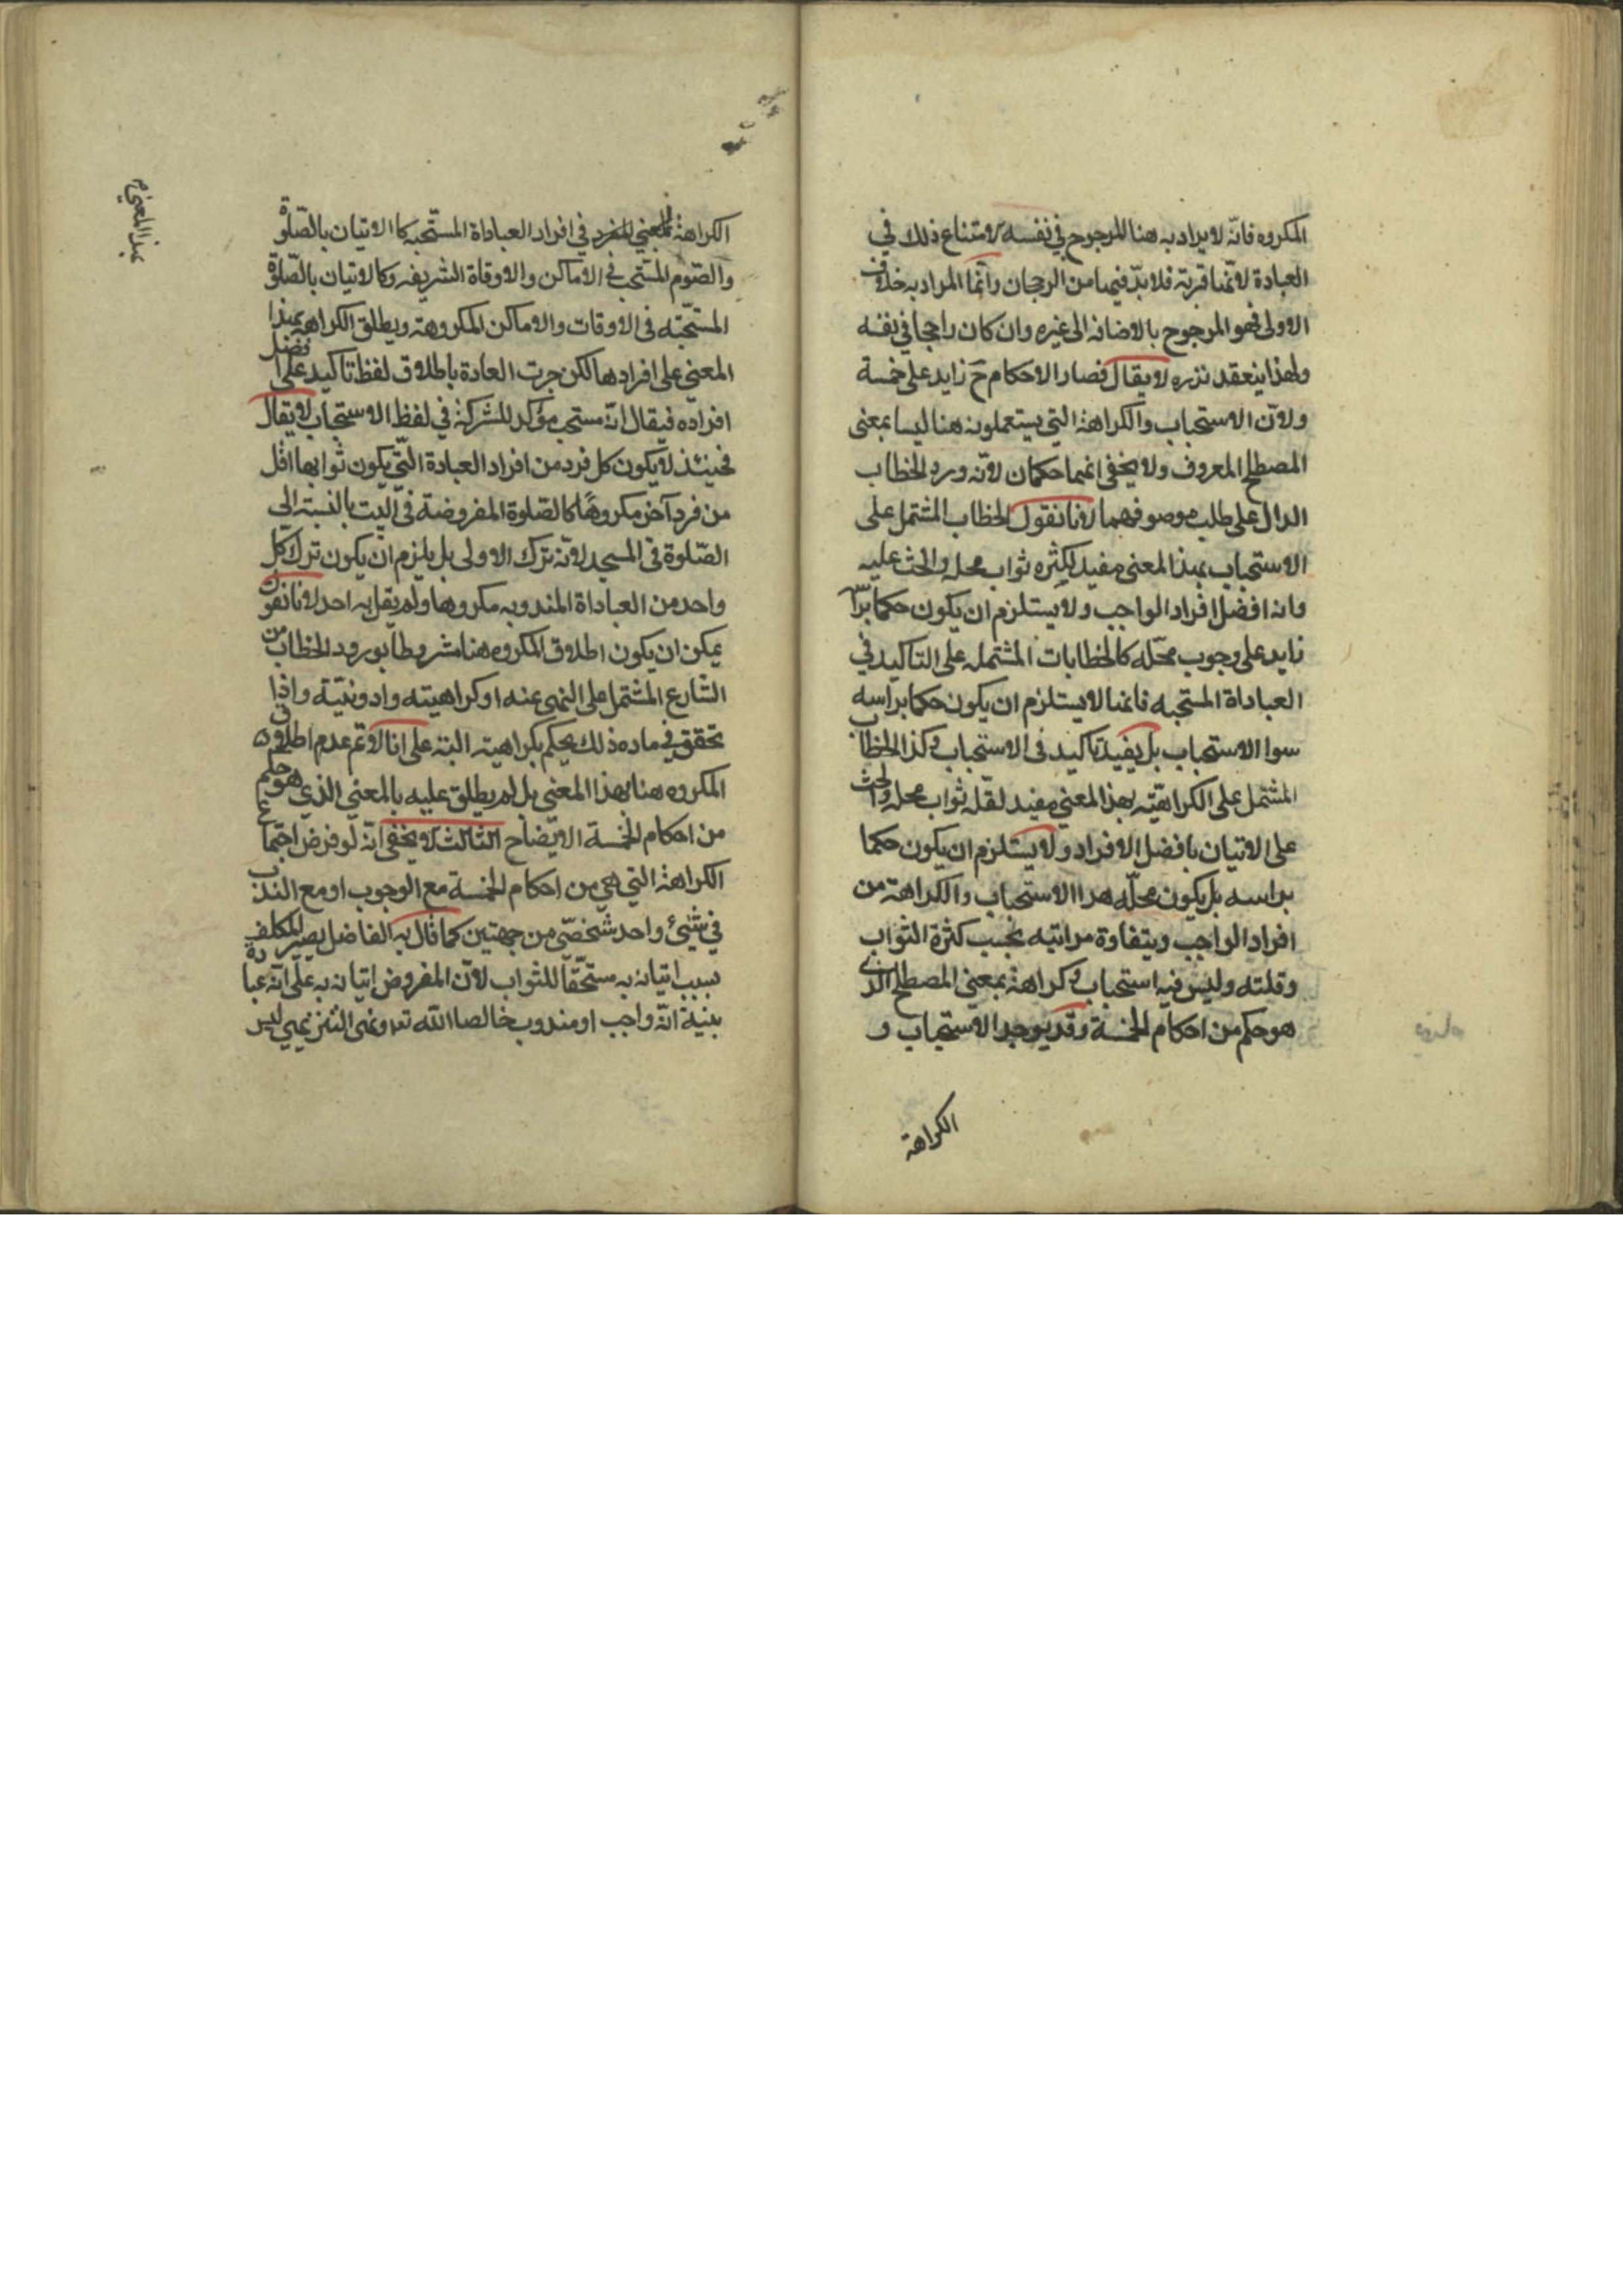 المكروه فانّه لا يراد به هنا المرجوح في نفسه لامتناع ذلك في
العبادة لانّها قربة فلا بدّ فيها من الرجحان وانّما المراد به خلاف
الاولى فهو المرجوح بالاضافه الى غيره وان كان راجحا في نفسه
ولهذا ينعقد نذره لا يقال فصار الاحكام ح زايد على خمسة
ولانّ الاستحباب والكراهة التي يستعملونه هنا ليسا بمعنى
المصطلح المعروف ولا يخفى انهما حكمان لانّه ورد الخطاب
الدال على طلب موصوفهما لانا نقول الخطاب المشتمل على
الاستحباب بهذا المعنى مفيد لكثره ثواب محله والحث عليه
وانه افضل افراد الواجب ولا يستلزم ان يكون حكما براسه
زايد على وجوب محلّه كالخطابات المشتمله على التاكيد في
العباداة المستحبه فانها لا يستلزم ان يكون حكما براسه
سوا الاستحباب بل يفيد تاكيد فى الاستحباب وكذا الخطاب
المشتمل على الكراهيّته بهذا المعنى مفيد لقلّه ثواب محله والحث
على الاتيان بافضل الافراد ولا يستلزم ان يكون حكما
براسه بل يكون محلّه هذا الاستحباب والكراهة من
افراد الواجب ويتفاوة مراتبه بحسب كثرة الثواب
وقلته وليس فيه استحباب وكراهة بمعنى المصطلح الذي
هو حكم من احكام الخمسة وقد يوجد الاستحباب و
الكراهة
الكراهة بالمعنى في افراد العباداة المستحبه كا الاتيان بالصّلوة
والصّوم المستحب في الاماكن والاوقاة الشريفه وكالاتيان بالصّلوة
المستحبّه فى الاوقات والاماكن المكروهة ويطلق الكراهة بهذا
المعني على افرادها لكن جرت العادة باطلاق لفظ تاكيد على افضل
افراده فيقال انّه مستحب مؤكد للشركة في لفظ الاستحباب لا يقال
فحينئذ لا يكون كل فرد من افراد العبادة التّي يكون ثوابها اقل
من فرد آخر مكروهًا كالصّلوة المفروضة فى البيت بالنسبة الى
الصّلوة فى المسجد لانّه ترك الاولى بل يلزم ان يكون ترك كل
واحد من العباداة المندوبه مكروها ولم يقل به احد لانا نقول
يمكن ان يكون اطلاق المكروه هنا مشروطا بورود الخطاب من
الشارع المشتمل على النهى عنه او كراهيته وادونيّته واذا
تحقق في ماده ذلك يحكم بكراهيته البتة على انا لا نم عدم اطلاق
المكروه هنا بهذا المعنى بل لم يطلق عليه بالمعنى الذي هو حكم
من احكام الخمسة الايضاح الثالث لا يخفى انّه لو فرض اجتماع
الكراهة التي هي من احكام الخمسة مع الوجوب او مع الندب
في شيئ واحد شخصّى من جهتين كما قال به الفاضل يصير المكلف
بسبب اتيانه به مستحقّا للثواب لانّ المفروض اتيانه به على انّه عبادة
بنية انّه واجب او مندوب خالصا لله تعـ ونهى التنزيهي ليس